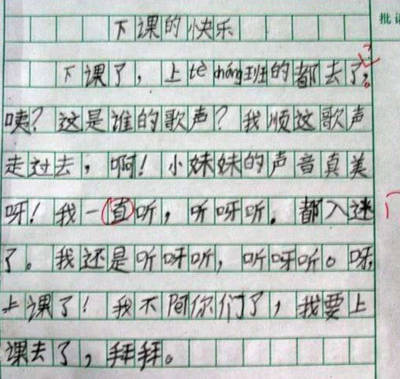 下课的快乐
下课了，上tè cháng班的都去了。
咦？这是谁的歌声？我顺这歌声
走过去，啊！小妹妹的声音真美
呀！我一直听，听呀听，都入迷
了。我还是听呀听，听呀听。呀，
上课了！我不陪你们了，我要上
课去了，拜拜。